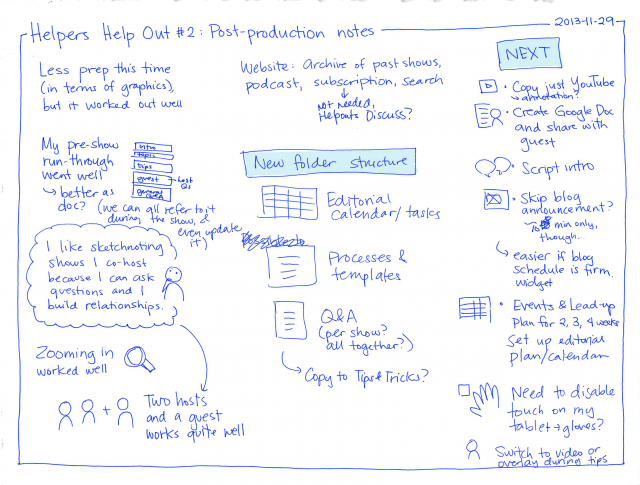 Helpers Help Out #2: Post-production notes
2013-11-29
Less prep this time
(in terms of graphics),
but it worked out well
My pre-show
run-through
went well
↳ better as
doc?
(we can all refer to it
during the show, &
even update
it)
intro
topic
tips
guest
Q&A
← Last
Qs
I like sketchnoting
shows I co-host
because I can ask
questions and I
build relationships.
Zooming in
worked well
Two hosts
and a guest
works quite well
Website: Archive of past shows,
podcast, subscription, search
↓
not needed,
Helpouts Discuss?
New folder structure
Editorial
calendar/tasks
Processes &
templates
Q&A
(per show?
all together?)
↳ Copy to Tips & Tricks?
NEXT
• Copy just YouTube
→ annotation?
• Create Google Doc
and share with
guest
• Script intro
• Skip blog
announcement?
min only,
though...
↳ easier if blog
schedule is firm.
widget
• Events & Lead-up
Plan for 2, 3, 4 weeks
Set up editorial
plan/calendar
Need to disable
touch on my
tablet → gloves?
Switch to video or
overlay during tips